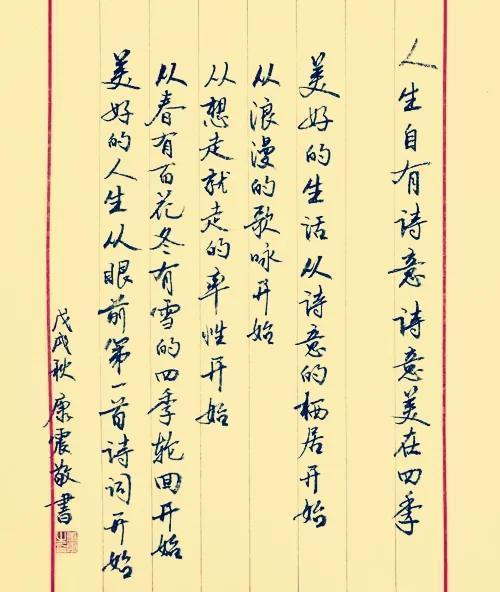 人生自有诗意诗意美在四季
美好的生活从诗意的栖居开始
从浪漫的歌咏开始
从想走就走的率性开始
从春有百花冬有雪的四季轮回开始
美好的人生从眼前第一首诗词开始
戊戌秋康震敬书